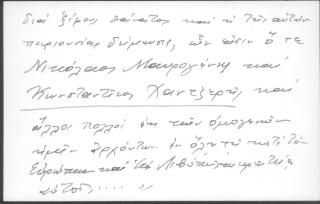 διὰ ξίφους θάνατος καὶ ἡ τῶν αὐτῶν
περιουσίας δήμευσις, ὧν εἰσιν ὅ τε
Νικόλαος Μαυρογένης καὶ
Κωνσταντῖνος Χαντζερῆς, καὶ
ἄλλοι πολλοὶ ἐκ τῶν ὁμογενῶν
ἡμῶν ἀρχόντων ἐν ὅλῃ
Εὐρώπῃ καὶ